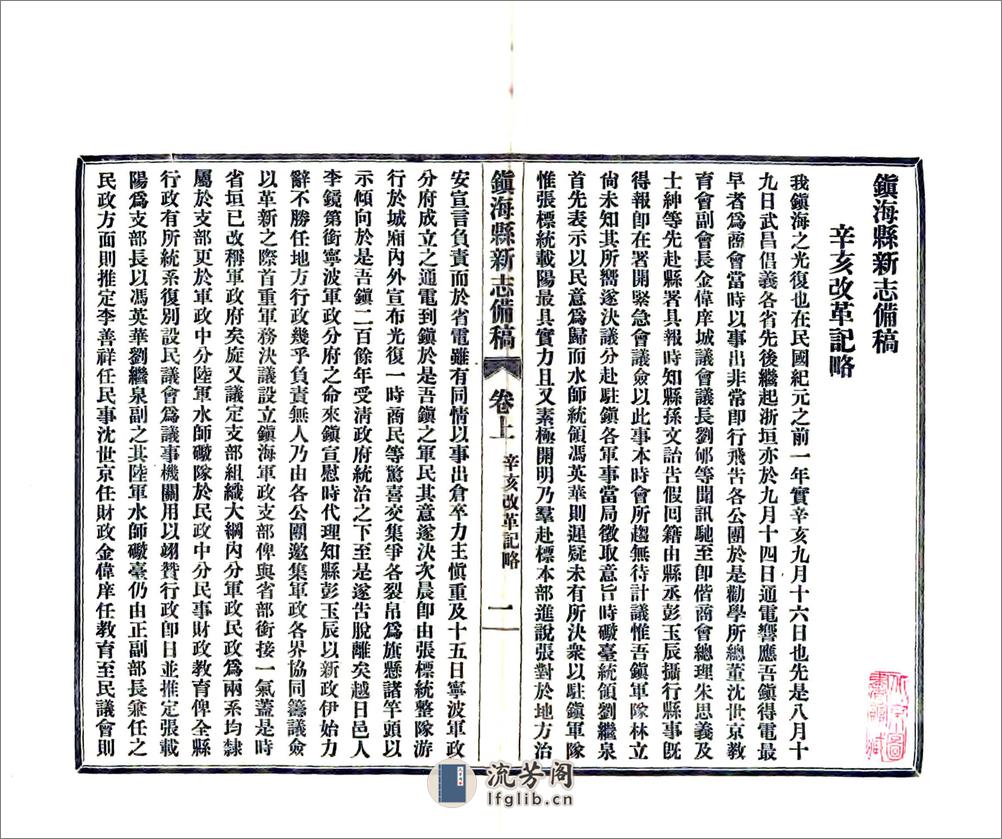 鎭海縣新志備稿
辛亥改革記略
我鎭海之光復也在民國紀元之前一年實辛亥九月十六日也先是八月十
九日武昌倡義各省先後繼起浙垣亦於九月十四日通電響應吾鎭得電最
早者爲商會當時以事出非常即行飛吿各公團於是勸學所總董沈世京敎
育會副會長金偉庠城議會議長劉邨等聞訊馳至卽偕商會總理朱思義及
士紳等先赴縣署具報時知縣孫文詒吿假回籍由縣丞彭玉辰攝行縣事旣
得報卽在署開緊急會議僉以此事本時會所趨無待計議惟吾鎭軍隊林立
尙未知其所嚮遂決議分赴駐鎭各軍事當局徵取意旨時礮臺統領劉繼泉
首先表示以民意爲歸而水師統領馮英華則遲疑未有所決衆以駐鎭軍隊
惟張標統載陽最具實力且又素極開明乃羣赴標本部進說張對於地方治
鎭海縣新志備稿 卷上 辛亥改革記略 一
安宣言負責而於省電雖有同情以事出倉卒力主愼重及十五日寧波軍政
分府成立之通電到鎭於是吾鎭之軍民其意遂決次晨卽由張標統整隊游
行於城廂內外宣布光復一時商民等驚喜交集爭各裂帛爲旗懸諸竿頭以
示傾向於是吾鎭二百餘年受清政府統治之下至是遂吿脫離矣越日邑人
李鏡第銜寧波軍政分府之命來鎭宣慰時代理知縣彭玉辰以新政伊始力
辭不勝任地方行政幾乎負責無人乃由各公團邀集軍政各界協同籌議僉
以革新之際首重軍務決議設立鎭海軍政支部俾與省部銜接一氣蓋是時
省垣已改稱軍政府矣旋又議定支部組織大綱內分軍政民政爲兩系均隸
屬於支部更於軍政中分陸軍水師礮隊於民政中分民事財政敎育俾全縣
行政有所統系復別設民議會爲議事機關用以翊贊行政卽日並推定張載
陽爲支部長以馮英華劉繼泉副之其陸軍水師礮臺仍由正副部長兼任之
民政方面則推定李善祥任民事沈世京任財政金偉庠任敎育至民議會則
流芳阁
lfglib.cn